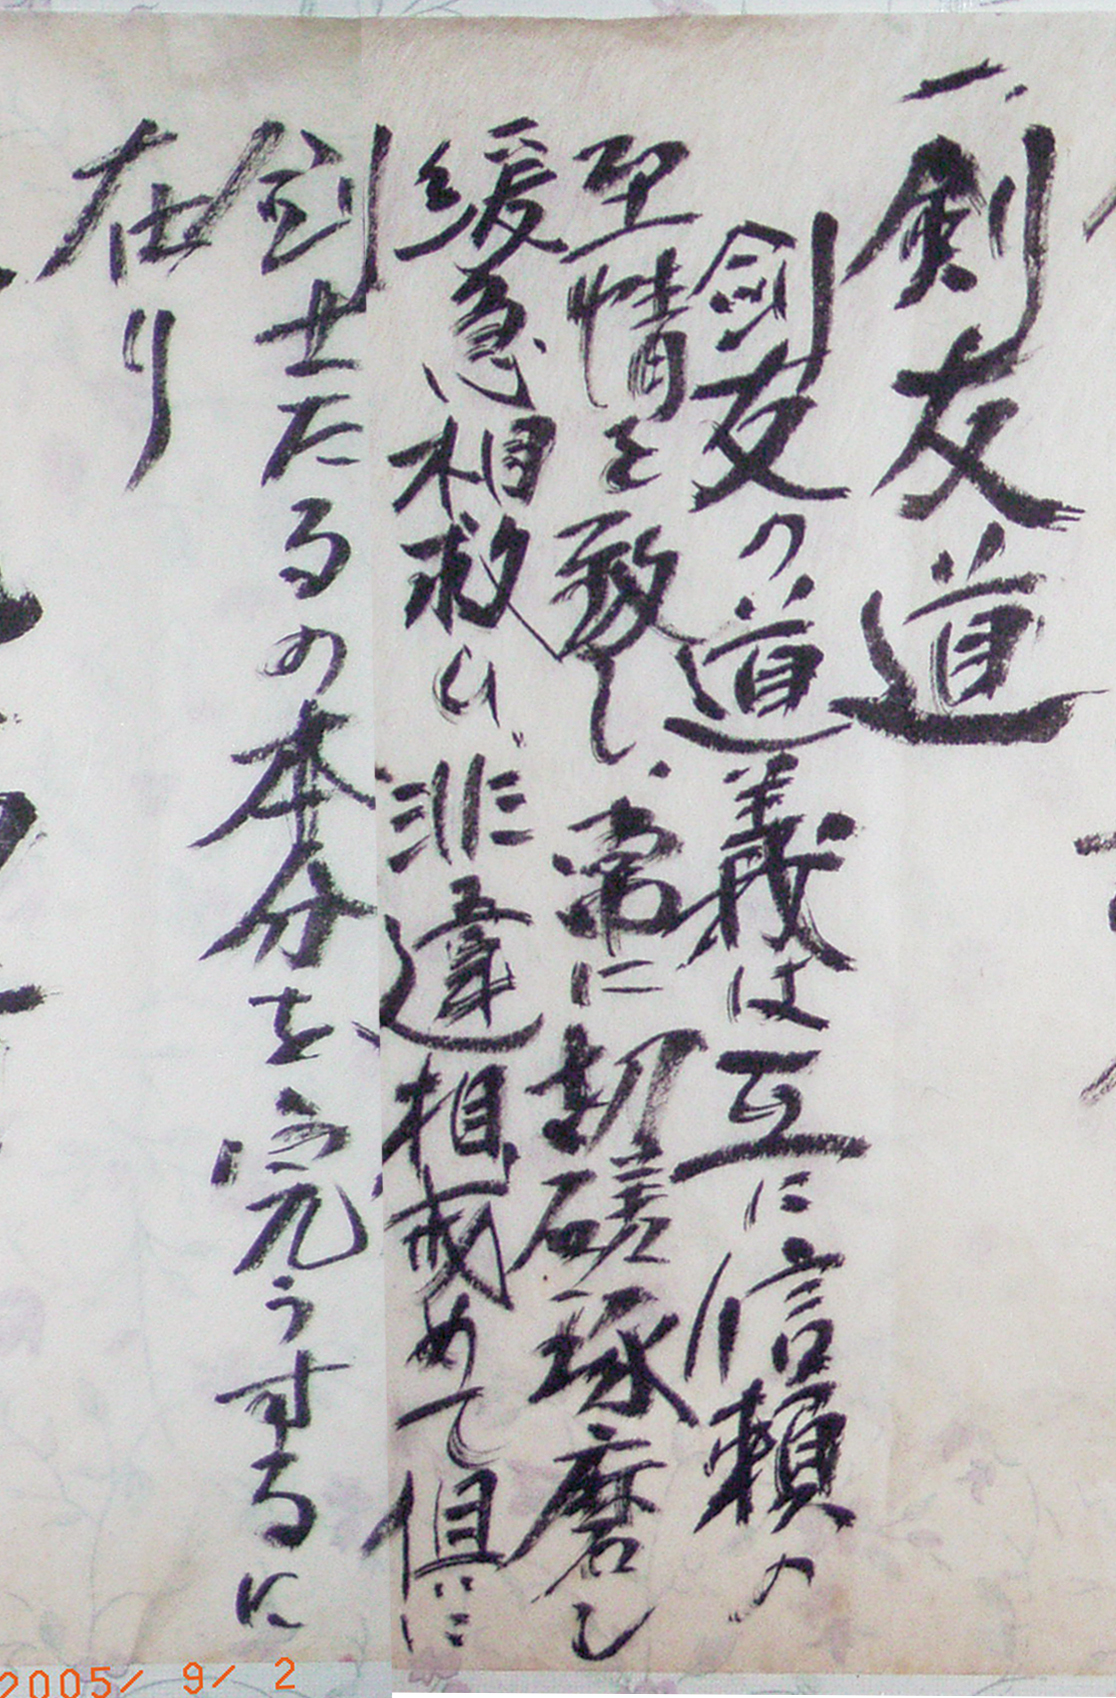 一、剣友道
剣友の道義は互に信頼の
至情を致し、常に切磋琢磨し
緩急相救ひ、非違相戒めて倶に
剣士たるの本分を完うするに
在り
2005/ 9/ 2